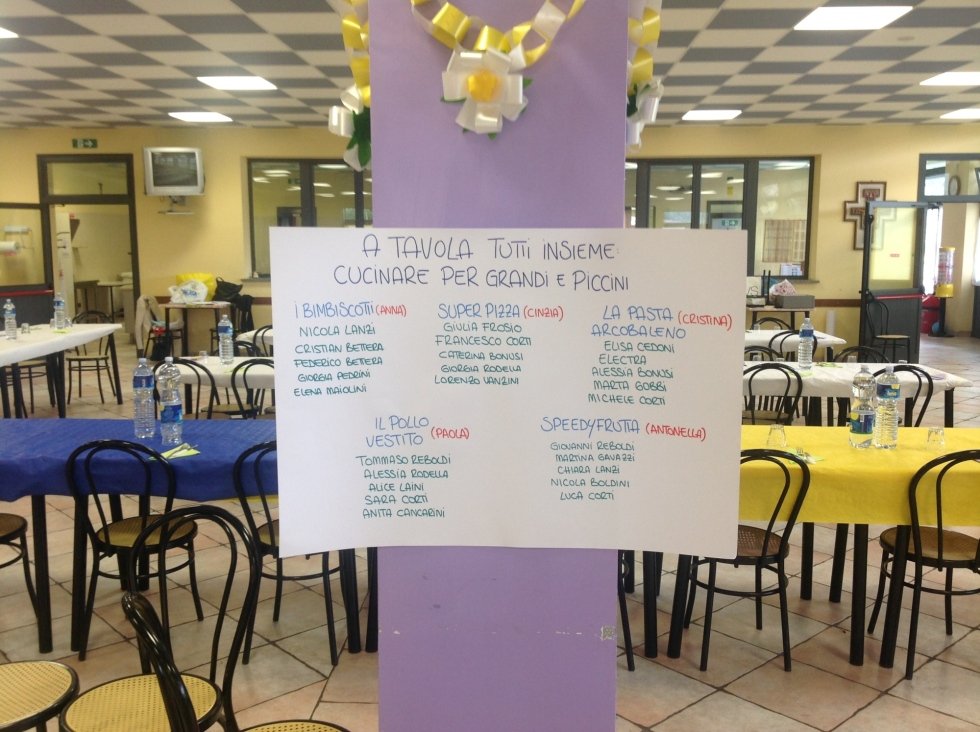 A TAVOLA TUTTI INSIEME:
CUCINARE PER GRANDI E PICCINI
I BIMBISCOTTI (ANNA)
NICOLA LANZI
CRISTIAN BETTERA
FEDERICO BETTERA
GIORGIA PEDRINI
ELENA MAIOLINI
SUPER PIZZA (CINZIA)
GIULIA FROSIO
FRANCESCO CORTI
CATERINA BONUSI
GIORGIA RODELLA
LORENZO VANZINI
LA PASTA (CRISTINA)
ARCOBALENO
ELISA CEDONI
ELECTRA
ALESSIA BONUSI
MARTA GOBBI
MICHELE CORTI
IL POLLO
VESTITO (PAOLA)
TOMMASO REBOLDI
ALESSIA RODELLA
ALICE LAINI
SARA CORTI
ANITA CANCARINI
SPEEDYFRUTTA (ANTONELLA)
GIOVANNI REBOLDI
MARTINA GAVAZZI
CHIARA LANZI
NICOLA BOLDINI
LUCA CORTI